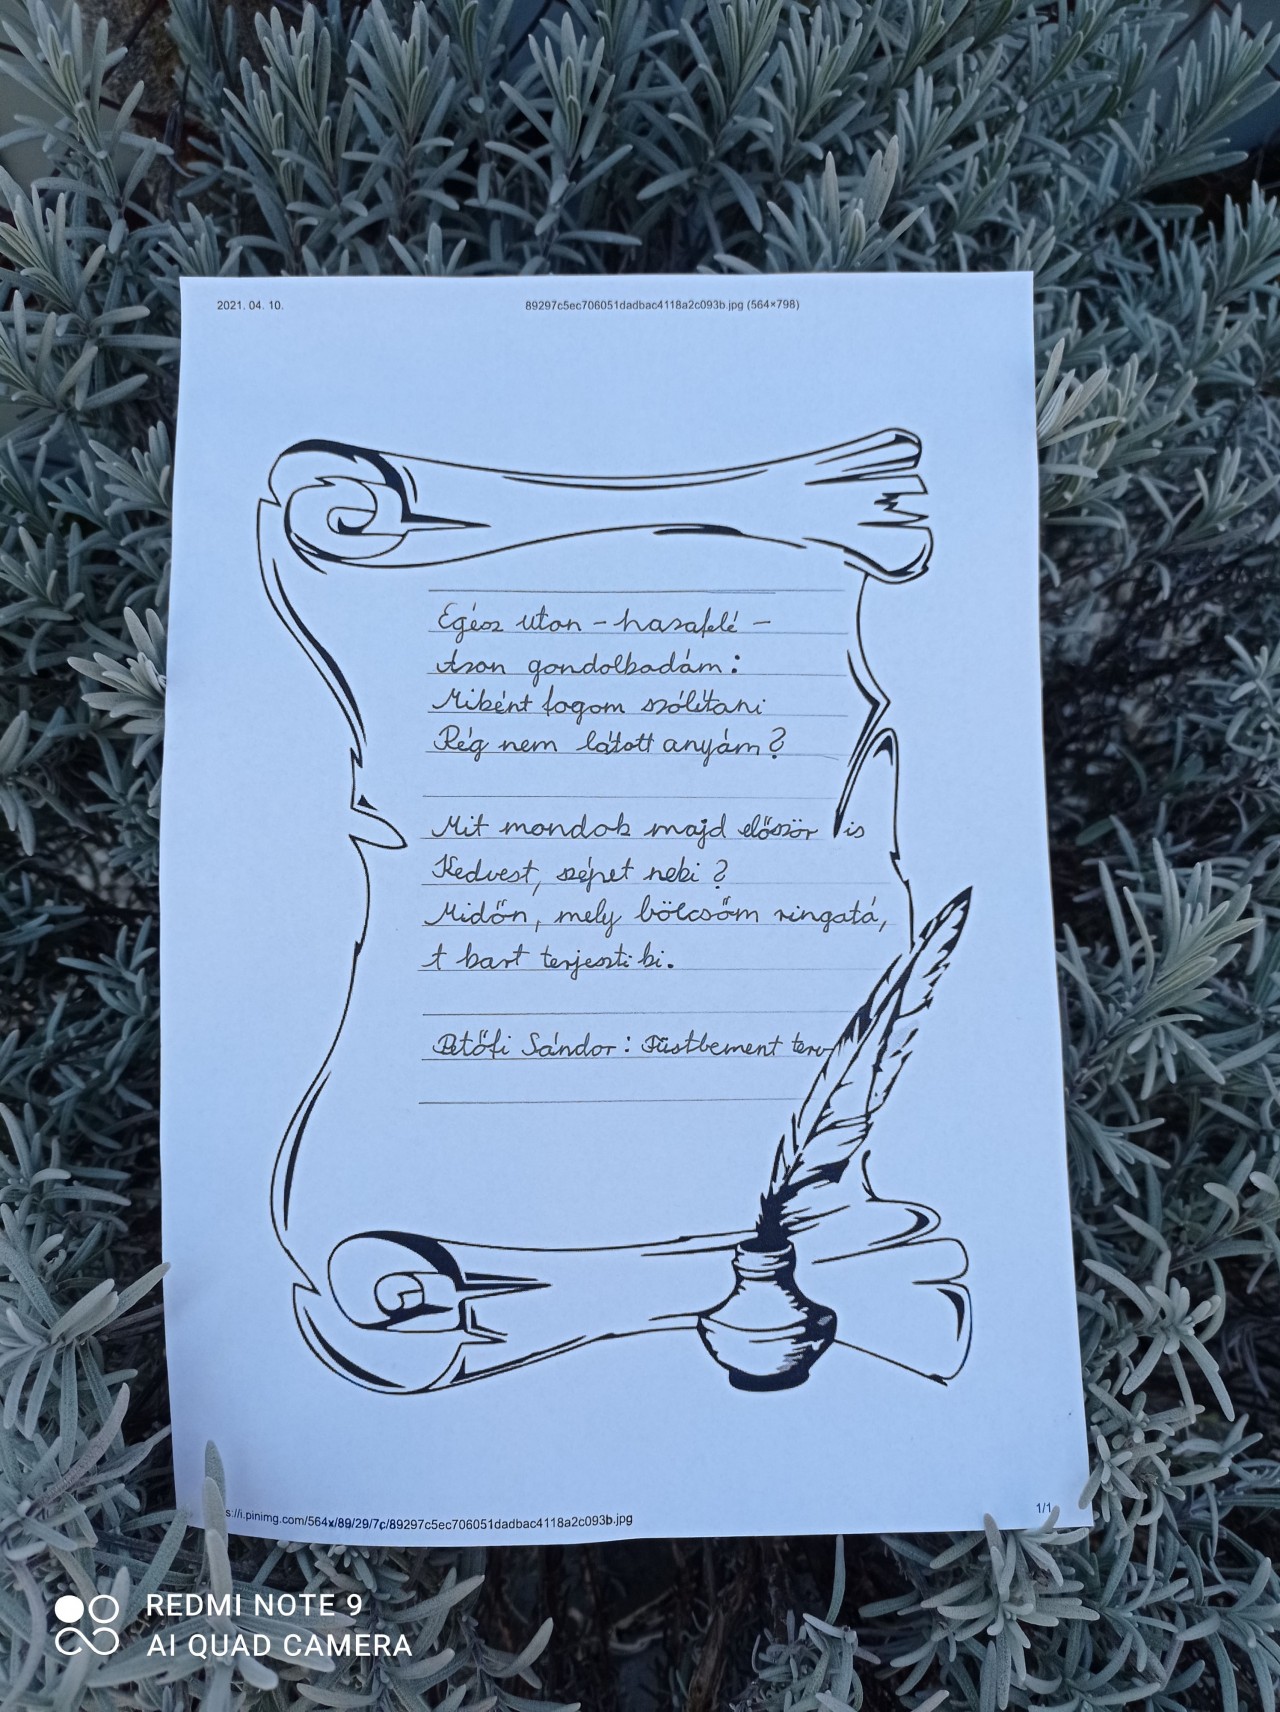 2021. 04. 10.
89297c5ec706051dadbac4118a2c093b.jpg (564×798)
Egész uton – hazafelé –
Azon gondolkodám:
Miként fogom szólítani
Rég nem látott anyám?
Mit mondok majd először is
Kedvest, szépet neki?
Midőn, mely bölcsőm ringatá,
A kart terjeszti ki.
Petőfi Sándor: Füstbement terv
s://i.pinimg.com/564x/89/29/7c/89297c5ec706051dadbac4118a2c093b.jpg
1/1
REDMI NOTE 9
AI QUAD CAMERA